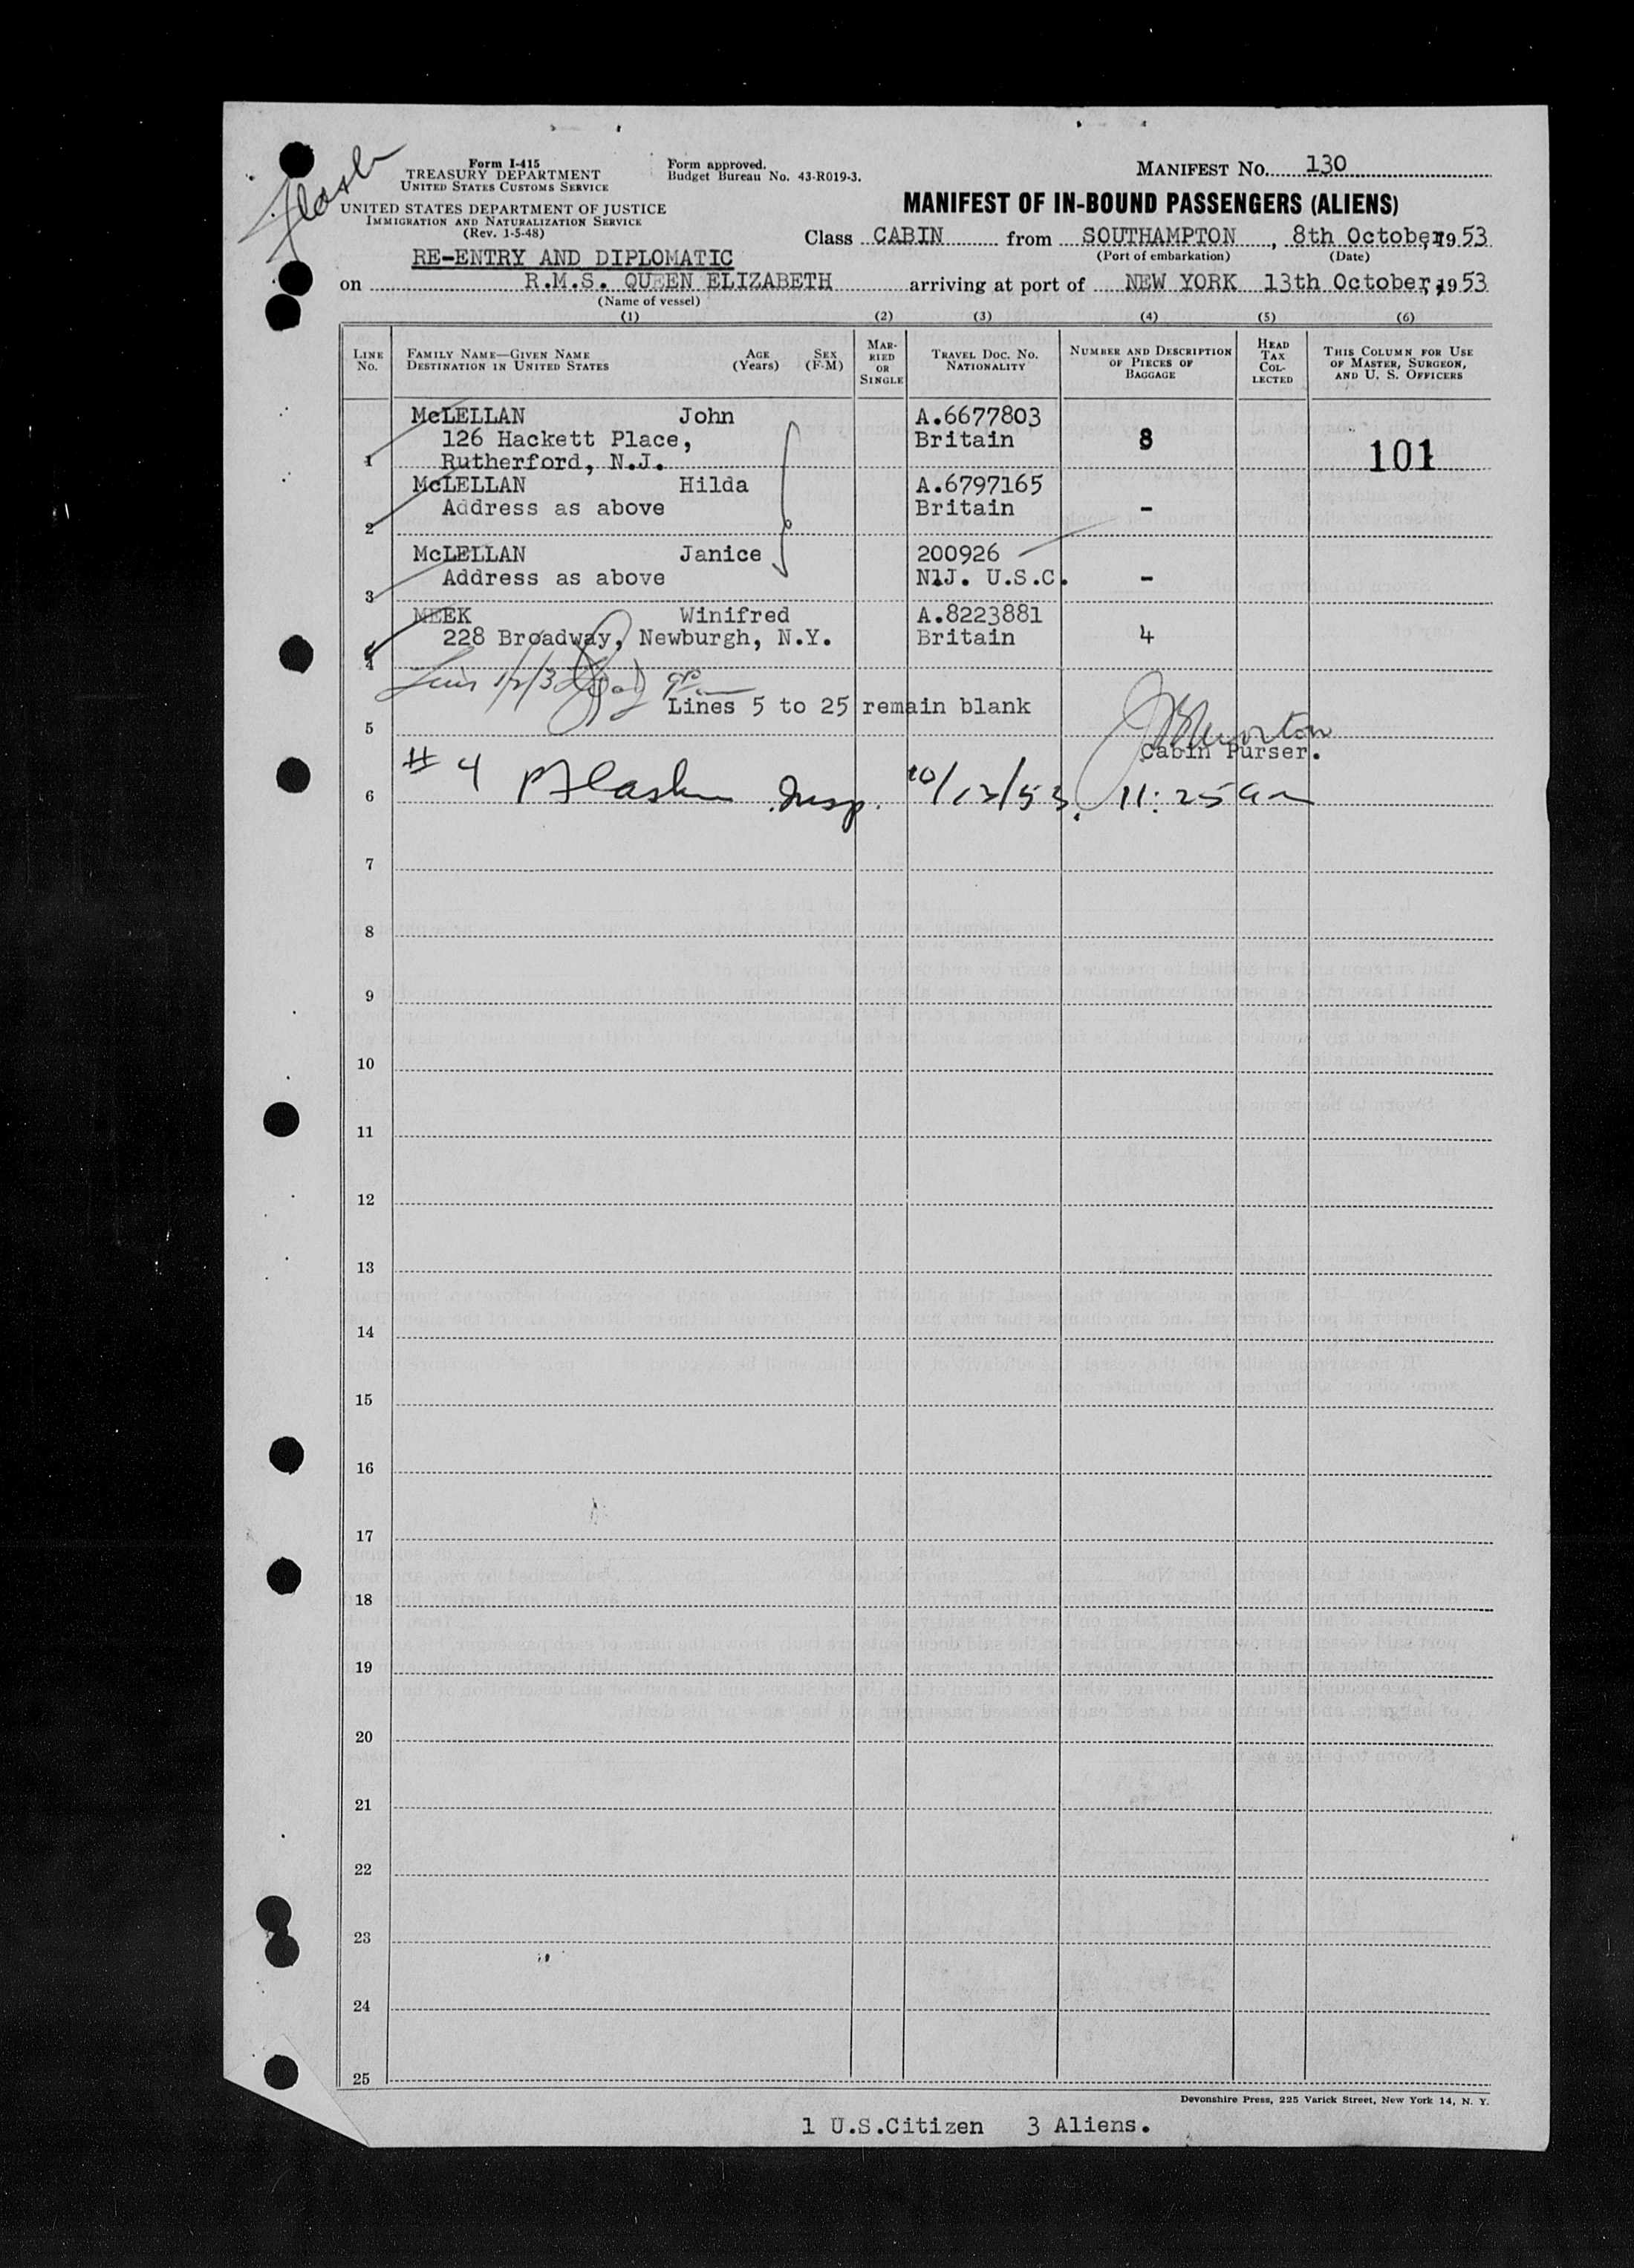 Form I-415
TREASURY DEPARTMENT
UNITED STATES CUSTOMS SERVICE
UNITED STATES DEPARTMENT OF JUSTICE
IMMIGRATION AND NATURALIZATION SERVICE
(Rev. 1-5-48)
Form approved.
Budget Bureau No. 43-R019-3.
MANIFEST NO. 130
MANIFEST OF IN-BOUND PASSENGERS (ALIENS)
Class CABIN from SOUTHAMPTON, 8th October, 1953
(Port of embarkation) (Date)
RE-ENTRY AND DIPLOMATIC
on R.M.S. QUEEN ELIZABETH arriving at port of NEW YORK 13th October, 1953
(Name of vessel)
(1) (2) (3) (4) (5) (6)
LINE NO.
FAMILY NAME—GIVEN NAME
DESTINATION IN UNITED STATES
AGE (Years)
SEX (F-M)
MARRIED OR SINGLE
TRAVEL DOC. NO. NATIONALITY
NUMBER AND DESCRIPTION OF PIECES OF BAGGAGE
HEAD TAX COLLECTED
THIS COLUMN FOR USE OF MASTER, SURGEON, AND U. S. OFFICERS
McLELLAN John A.6677803
126 Hackett Place, Britain 8
1 Rutherford, N.J. 101
McLELLAN Hilda A.6797165
Address as above Britain -
2
McLELLAN Janice 200926
Address as above N1J. U.S.C. -
3
MEEK Winifred A.8223881
228 Broadway, Newburgh, N.Y. Britain 4
4
1/2/3
Lines 5 to 25 remain blank
5
Cabin Purser.
# 4 Insp. 10/13/53, 11:25 am
6
7
8
9
10
11
12
13
14
15
16
17
18
19
20
21
22
23
24
25
Devonshire Press, 225 Varick Street, New York 14, N. Y.
1 U.S.Citizen 3 Aliens.